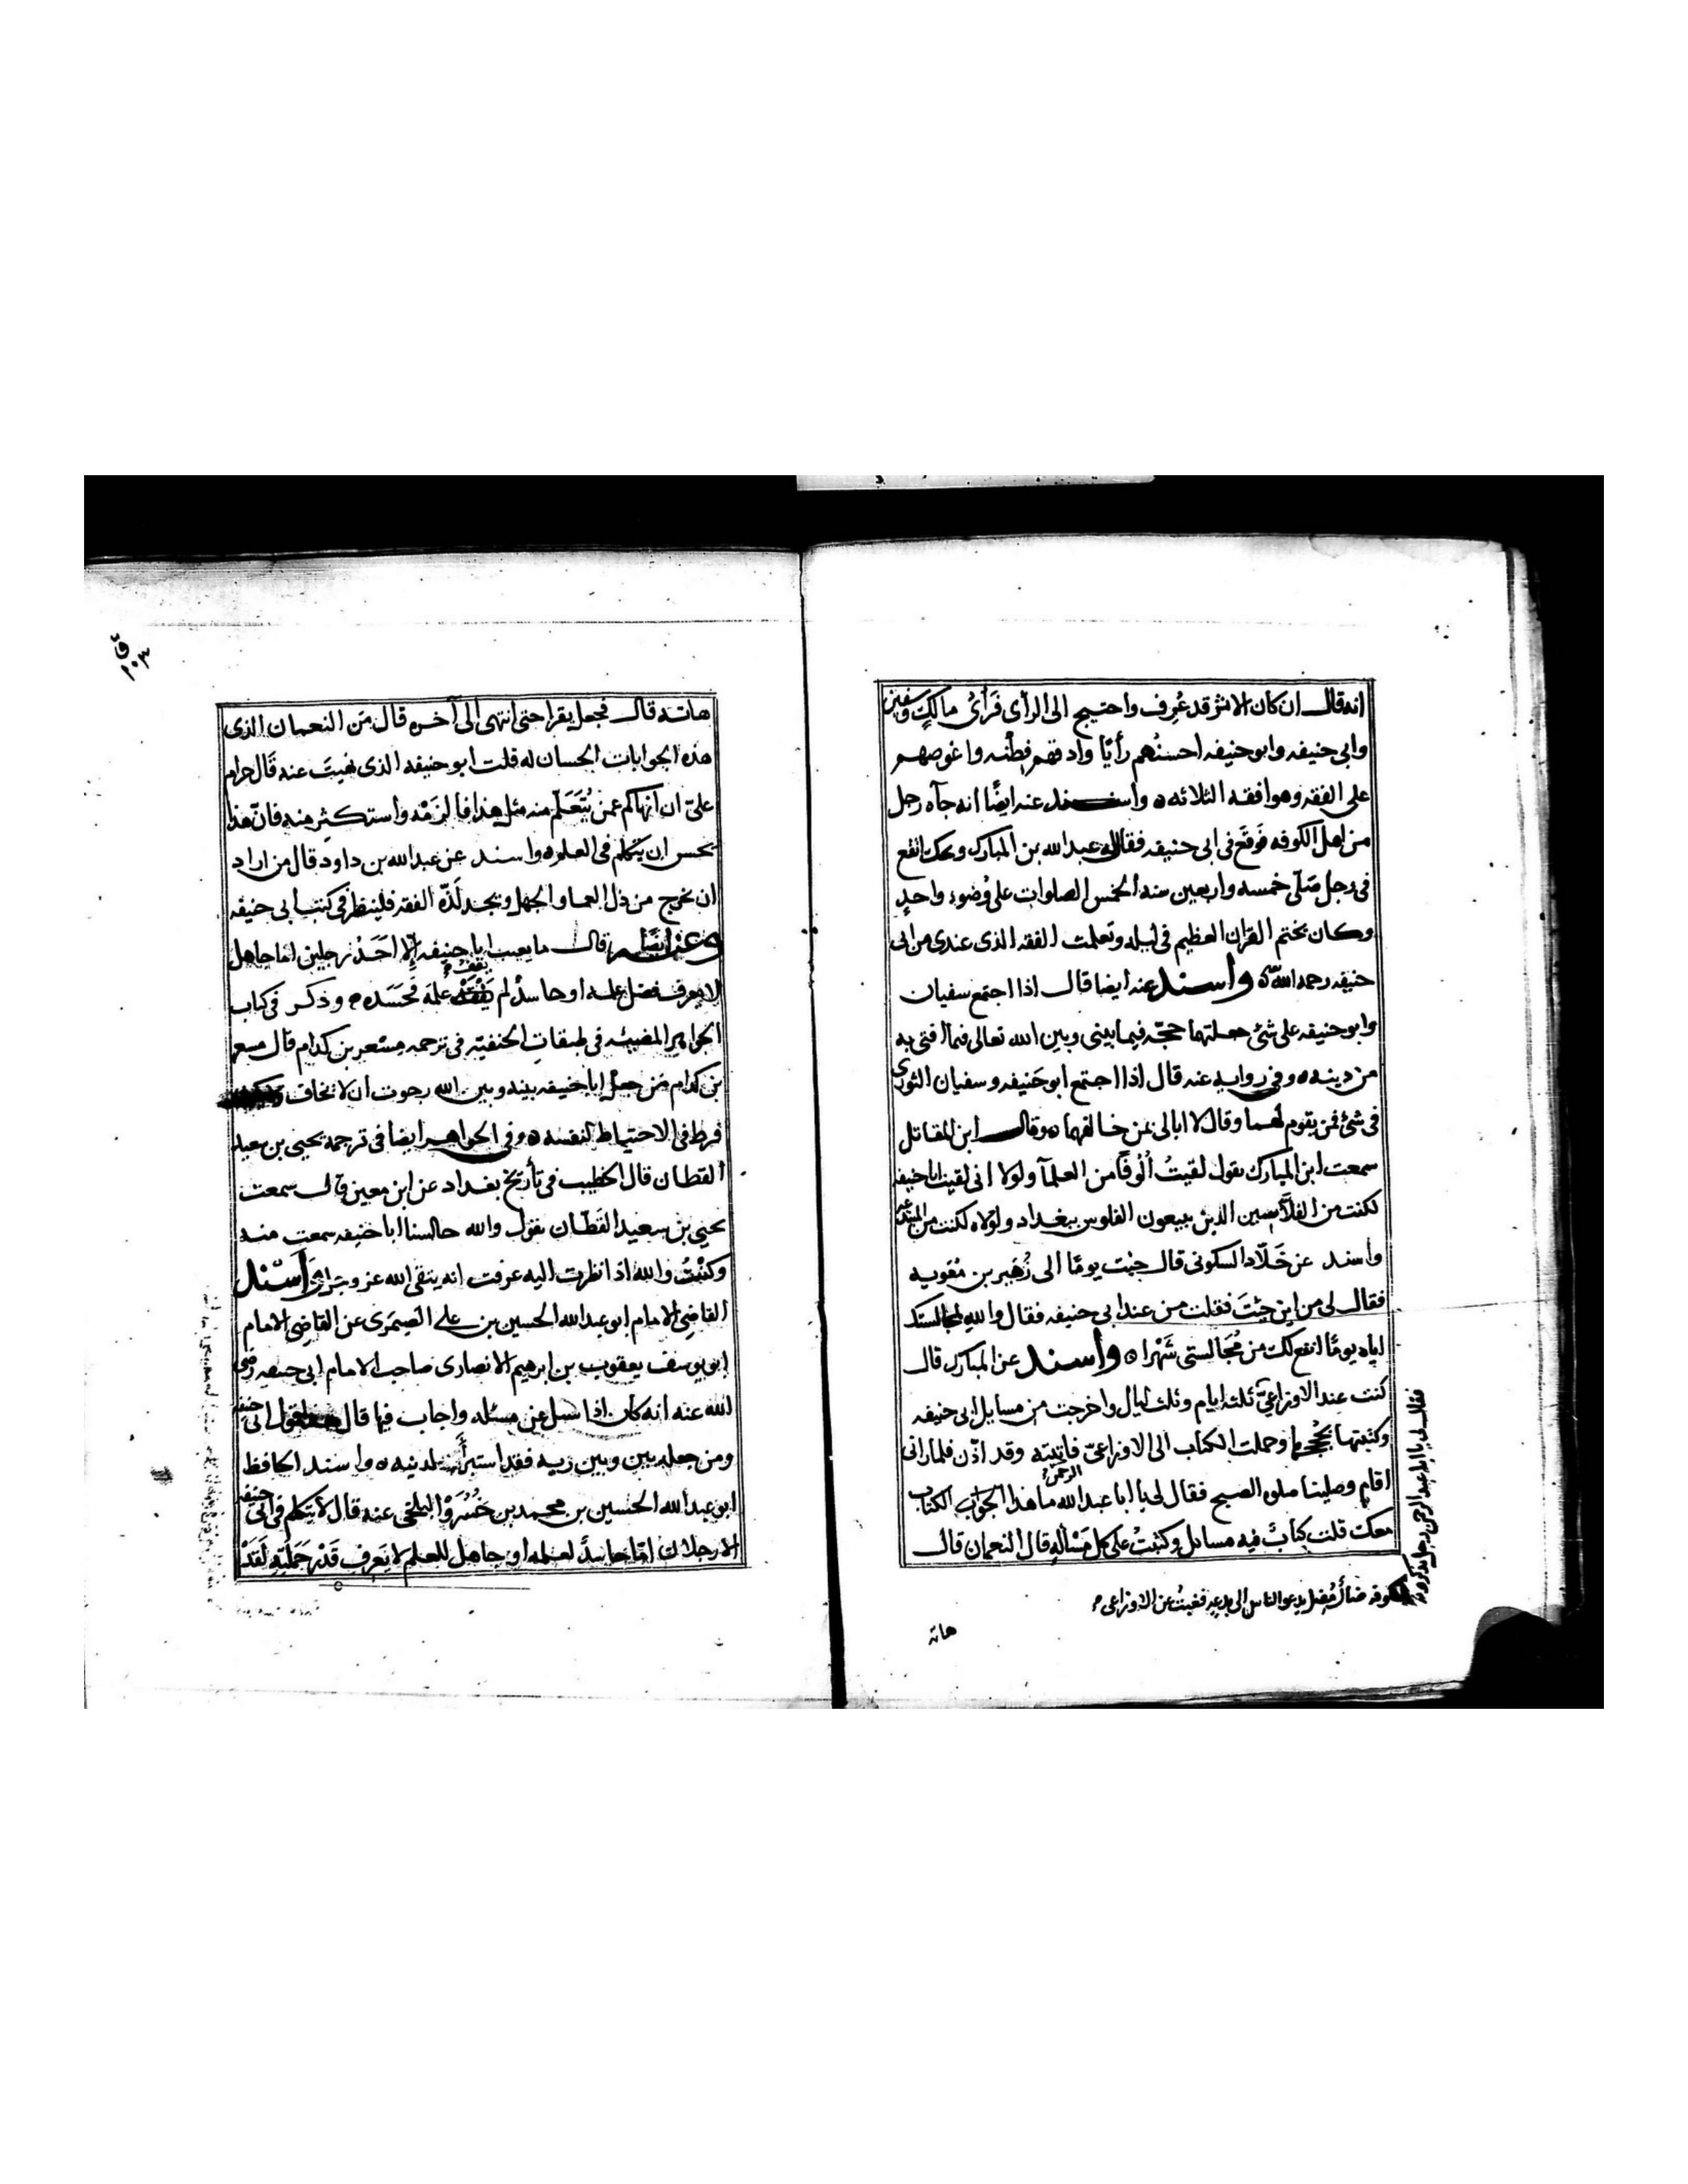 انه قال ان كان الاثر قد عُرِف واحتيج الى الرأى فَرَأىُ مالكٍ وسفين
وابى حنيفه وابو حنيفه احسنُهم رأيًا وادقهم فِطْنه واغوصهم
على الفقه وهو افقه الثلاثه ٥ واسند عنه ايضًا انه جآه رجل
من اهل الكوفه فَوَقَع فى ابى حنيفه فقال له عبدالله بن المبارك ويحك اتقع
فى رجل صَلّى خمسه واربعين سنه الخمس الصلوات على وُضوء واحدٍ
وكان يختم القران العظيم فى ليله وتعلمت الفقه الذى عندى من ابى
حنيفه رحمه الله ٥ وأسند عنه ايضا قال اذا اجتمع سفيان
وابو حنيفه على شئ جعلتهما حجّه فيما بينى وبين الله تعالى فيما افتى به
من دينه ٥ وفى روايه عنه قال اذا اجتمع ابو حَنيفه وسفيان الثورى
فى شئ فمن يقوم لهما وقال لا ابالى بمن خالفهما ٥ وقال ابن المقاتل
سمعت ابن المبارك يقول لقيتُ أُلوفًا من العلمآ ولولا انى لقيت ابا حنيفه
لكنت من الفلّاسين الذين يبيعون الفلوس ببغداد ولولاه لكنت من المبتدعه
وأسند عن خَلّاد السكونى قال جئت يومًا الى زُهَير بن مُعٰويه
فقال لى من اين جِئتَ فقلت من عند ابى حنيفه فقال والله لمجالستك
اياه يومًا انفع لك من مُجَالستى شَهْرا ٥ وأسند عن المبارك قال
كنت عند الاوزاعىّ ثلثه ايام وثلث ليال واخرجت من مسايل ابى حنيفه
وكتبتها بحُججها وحملت الكتاب الى الاوزاعىّ فاتيته وقد اذّن فلما رانى
اقام وصلينا صلوه الصبح فقال لى يا ابا عبدالله الرحمن ما هذا الجواب الكتاب
معك قلت كتابٌ فيه مسائل وكتبتُ على كل مَسْألهٍ قال النعمان قال
فقال لى يا ابا عبد الرحمن رجل يذكرونه
بالكوفه ضالٌ مُضل يدعو الناس الى بدعه فغبتُ عن الاوزاعى
هاته
ق ١٠٣
هاته قال فجعل يقرا حتى انتهى الى آخره قال مَن النعمان الذى
هذه الجوابات الحسان له قلت ابو حنيفه الذى نهيتَ عنه قَال حرام
علىّ ان انهاكم عمن يُتَعَلّم منه مثل هذا فالزَمْه واستكثِر منه فانّ هذا
يحسن ان يتكلم فى العلم ٥ واسند عن عبدالله بن داود قال من اراد
ان يخرج من ذل العما والجهل ويجد لَذّه الفقه فلينظر فى كتب ابى حنيفه
وعنه ايضًا قال ما يعيب ابا حنيفه إلّا احَدُ رجلين اما جاهل
لا يعرف فضل علمه او حاسدٌ لم يَقِفْ علمَه فحَسَده ٥ وذكر فى كتاب
الجواهر المضيئه فى طبقات الحنفيّه فى ترجمه مِسْعَر بن كدام قال مسعر
بن كدام مَن جعل ابا حنيفه بينه وبين الله رجوت ان لا يخاف
فرط فى الاحتياط لنفسه ٥ وفى الجواهر ايضا فى ترجمه يحيى بن سعيد
القطان قال الخطيب فى تأريخ بغداد عن ابن معين قال سمعت
يحيى بن سعيد القَطّان يقول والله جالسنا ابا حنيفه سمعت منه
وكُنْتُ والله اذا نظرت اليه عرفت انه يتقى الله عز وجل وَأَسْند
القاضى الامام ابو عبدالله الحسين بن على الصَيْمَرى عن القاضى الامام
ابو يوسف يعقوب بن ابرهيم الانصارى صاحب الامام ابى حنيفه رضى
الله عنه انه كان اذا سيل عن مسئله واجاب فيها قال هذا قول ابى حنيفه
ومن جعله بينه وبين ربه فقد استبرأ لدينه ٥ واسند الحافظ
ابو عبدالله الحسين بن محمد بن خُسْرَوْ البلخى عنه قال لا يتكلم فى ابى حنيفه
الا رجلان امّا حاسدٌ لعلمه او جاهل للعلم لا يَعرِف قَدْر حَمَلَتِهِ لَقَدْ